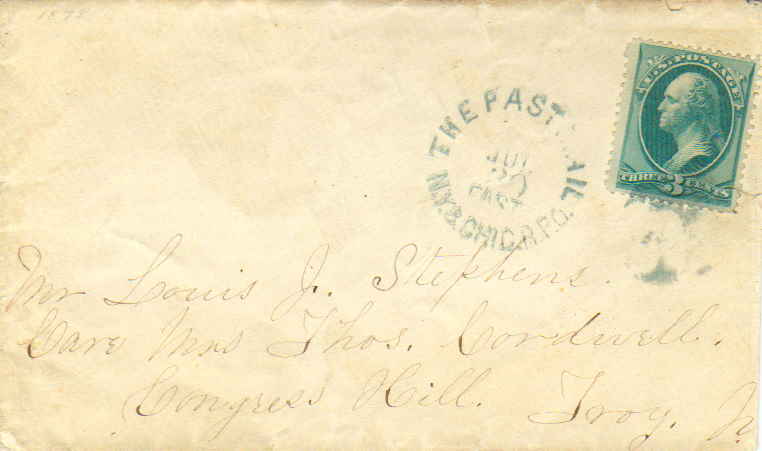 1875
U.S. POSTAGE
THREE 3 CENTS
THE FAST MAIL
JUL
20
EAST
N.Y. & CHIC. R.P.O.
Mr Louis J. Stephens.
Care Mrs Thos. Cordwell.
Congress Hill. Troy. N